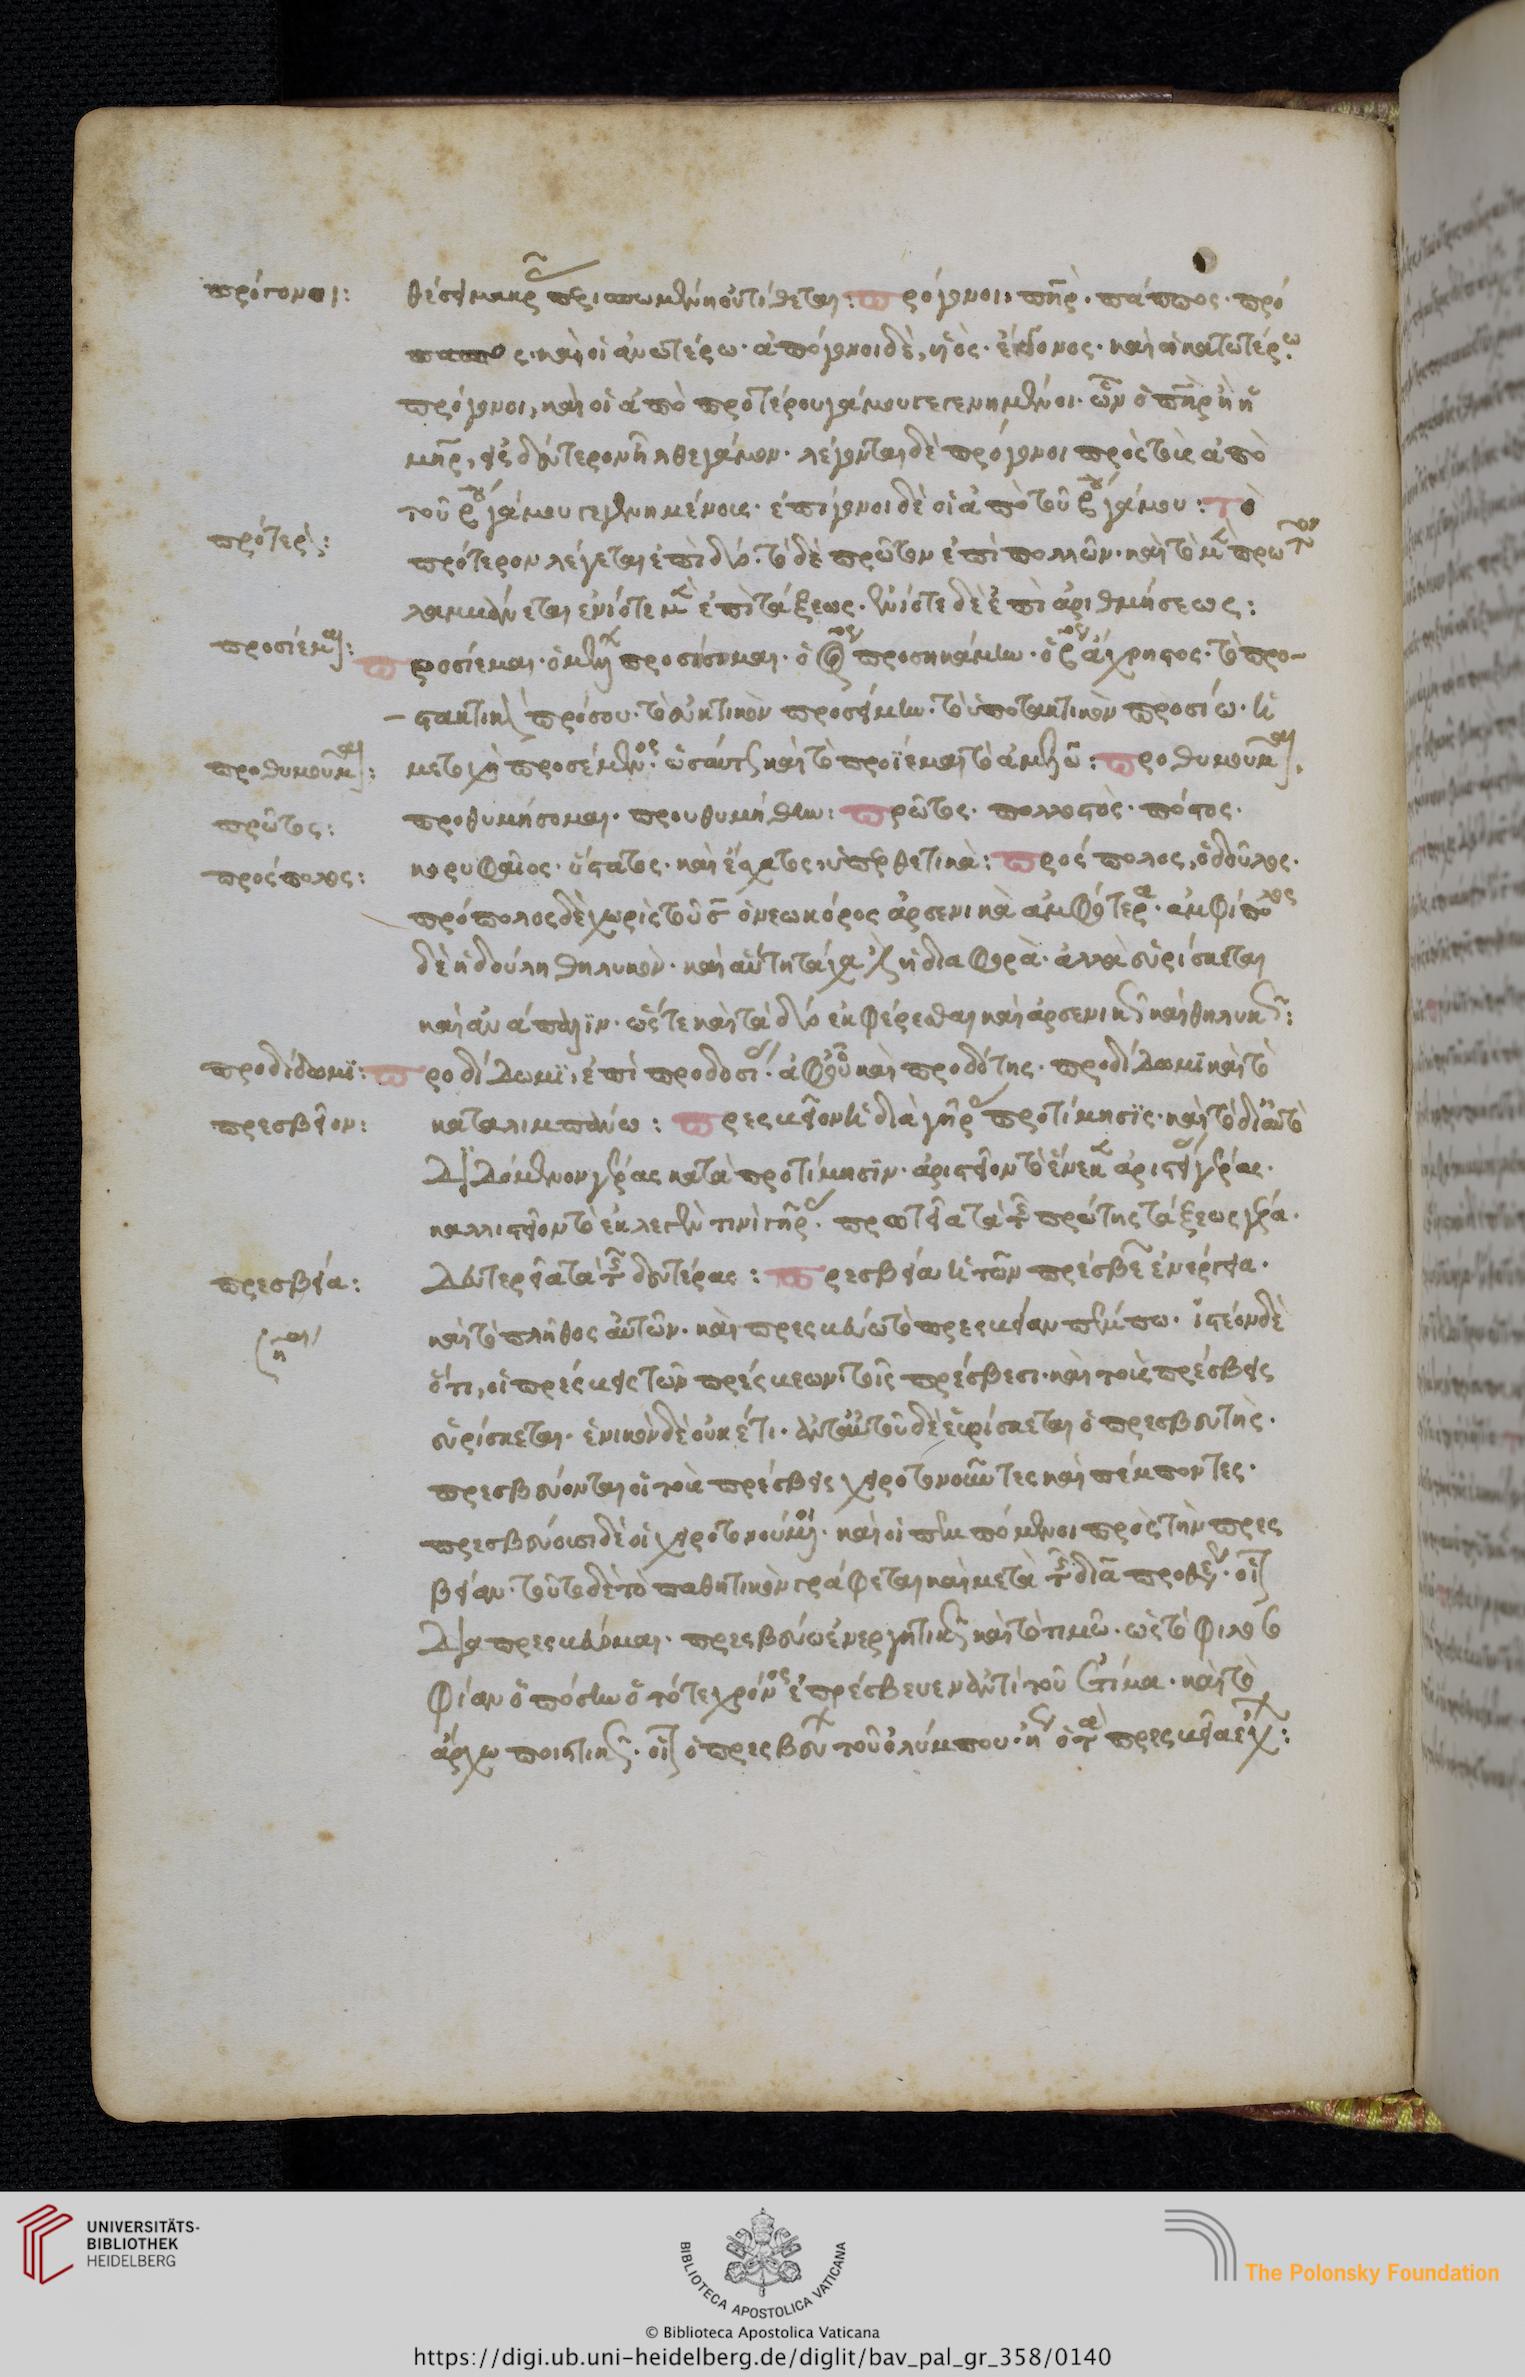 πρόγονοι:
πρόγονοι, πηρ. πάππος. πρό
ς. καὶ οἱ ἀνωτέρω. ἀπόγονοι δὲ, υἱὸς. ἔκγονος. καὶ οἱ κατωτέρω
πρόγονοι, καὶ οἱ ἀπὸ προτέρου γάμου γεγεννημένοι. ὧν ὁ πηρ ἢ ἡ
μηρ, εἰς δεύτερον ἦλθε γάμον. λέγονται δὲ πρόγονοι πρὸς τοὺς ἀπὸ
τοῦ γάμου γεγεννημένους. ἐπίγονοι δὲ οἱ ἀπὸ τοῦ γάμου: τὸ
πρότερ:
πρότερον λέγεται ἐπὶ δύο. τὸ δὲ πρῶτον ἐπὶ πολλῶν. καὶ τὸ μὲν πρῶτον
λαμβάνεται ἐνίοτε μὲν ἐπὶ τάξεως. ἐνίοτε δὲ ἐπὶ ἀριθμήσεως:
προσίεμαι:
προσίεμαι. ὁ μέλλων προσήσομαι. ὁ προσηκάμην. ὁ ἄχρηστος. τὸ προ-
στακτικὸν πρόσου. τὸ εὐκτικὸν προσείμην. τὸ ὑποτακτικὸν προσιῶ. ἡ
προθυμοῦμαι:
μετοχὴ προσέμενος. ὡσαύτως καὶ τὸ προΐεμαι τὸ ἀμελῶ: προθυμοῦμαι,
πρῶτος:
προθυμήσομαι. προυθυμήθην: πρῶτος. πολλοστὸς. πόστος.
πρόσπολος:
κορυφαῖος. ὕστατος. καὶ ἔσχατος, ὑπερθετικὰ: πρόσπολος, ὁ δοῦλος.
πρόπολος δὲ χωρὶς τοῦ σ ὁ νεωκόρος ἀρσενικὰ ἀμφότερα. ἀμφίπολος
δὲ ἡ δούλη θηλυκὸν. καὶ αὕτη τάχα ἡ διαφορὰ. ἀλλὰ εὑρίσκεται
καὶ ἀνάπαλιν. ὥστε καὶ τὰ δύο ἐκφέρεσθαι καὶ ἀρσενικῶς καὶ θηλυκῶς:
προδίδωμι:
προδίδωμι, ἐπὶ προδοσίας. ἀφ' οὗ καὶ προδότης. προδίδωμι καὶ τὸ
πρεσβεῖον:
καταλιμπάνω: πρεσβεῖον ἡ διὰ γῆρας προτίμησις. καὶ τὸ δι' αὐτὸ
διδόμενον γέρας κατὰ προτίμησιν. ἀριστεῖον τὸ ἕνεκα ἀριστείας γέρας.
καλλιστεῖον τὸ ἐκλεγέν τινι γέρας. πρωτεῖα τὰ τῆς πρώτης τάξεως γέρα.
πρεσβεία:
δευτερεῖα τὰ τῆς δευτέρας: πρεσβεία ἡ τῶν πρέσβεων ἐνέργεια.
καὶ τὸ πλῆθος αὐτῶν. καὶ πρεσβεύω τὸ πρεσβείαν πέμπω. ἰστέον δὲ
ὅτι, οἱ πρέσβεις τῶν πρέσβεων. τοῖς πρέσβεσι. καὶ τοὺς πρέσβεις
εὑρίσκεται. ἑνικὸν δὲ οὐκέτι. ἀντ' αὐτοῦ δὲ εὑρίσκεται ὁ πρεσβευτής.
πρεσβεύονται οἱ τοὺς πρέσβεις χειροτονοῦντες καὶ πέμποντες.
πρεσβεύουσι δὲ οἱ χειροτονούμενοι. καὶ οἱ πεμπόμενοι πρὸς τὴν πρεσ
βείαν. τοῦτο δὲ τὸ παθητικὸν γράφεται καὶ μετὰ τῆς διὰ προθέσεως. οἷον
διαπρεσβεύομαι. πρεσβεύω ἐνεργητικῶς καὶ τὸ τιμῶ. ὡς τὸ φιλοσο
φίαν ὁ πόσην ὁ τότε χρόνος ἐπρέσβευεν ἀντὶ τοῦ ἐτίμα. καὶ τὸ
ἄρχω ποιητικῶς. οἷον ὁ πρεσβεύων τοῦ ὀλύμπου. ἤγουν ὁ τὰ πρεσβεῖα ἔχων:
UNIVERSITÄTS-
BIBLIOTHEK
HEIDELBERG
BIBLIOTECA APOSTOLICA VATICANA
The Polonsky Foundation
© Biblioteca Apostolica Vaticana
https://digi.ub.uni-heidelberg.de/diglit/bav_pal_gr_358/0140